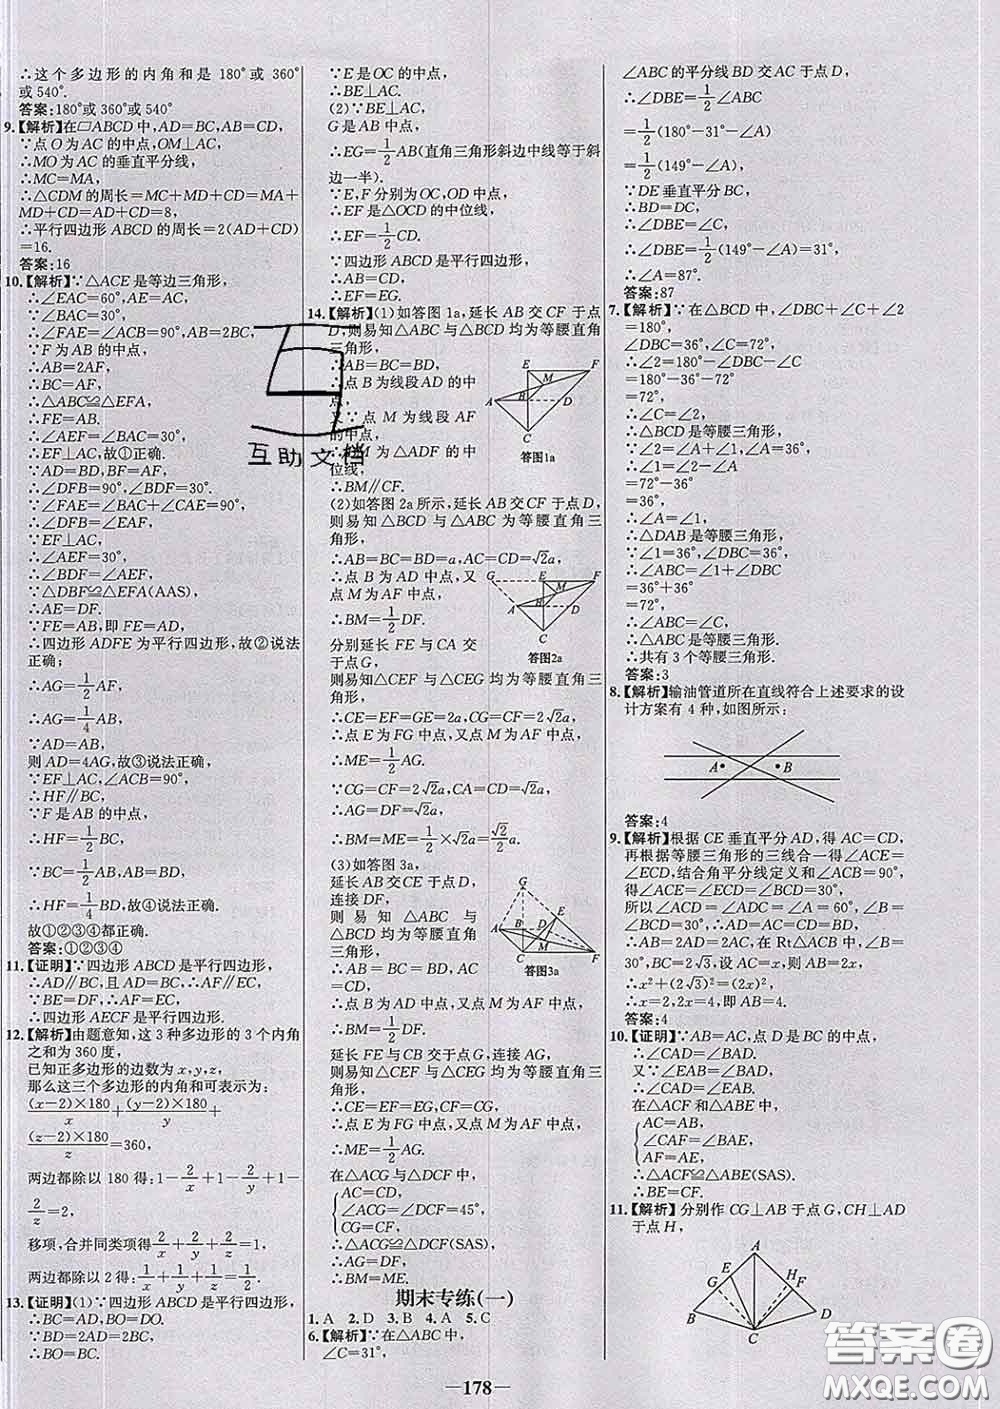 ∴这个多边形的内角和是 180°或 360°
或 540°.
答案:180°或 360°或 540°
9.【解析】在▱ABCD 中,AD=BC,AB=CD,
∵点 O 为 AC 的中点,OM⊥AC,
∴MO 为 AC 的垂直平分线,
∴MC=MA,
∴△CDM 的周长=MC+MD+CD=MA+
MD+CD=AD+CD=8,
∴平行四边形 ABCD 的周长=2(AD+CD)
=16.
答案:16
10.【解析】∵△ACE 是等边三角形,
∴∠EAC=60°,AE=AC,
∵∠BAC=30°,
∴∠FAE=∠ACB=90°,AB=2BC,
∵F 为 AB 的中点,
∴AB=2AF,
∴BC=AF,
∴△ABC≌△EFA,
∴FE=AB.
∴∠AEF=∠BAC=30°,
∴EF⊥AC,故①正确.
∵AD=BD,BF=AF,
∴∠DFB=90°,∠BDF=30°.
∵∠FAE=∠BAC+∠CAE=90°,
∴∠DFB=∠EAF,
∵EF⊥AC,
∴∠AEF=30°,
∴∠BDF=∠AEF,
∴△DBF≌△EFA(AAS),
∴AE=DF.
∵FE=AB,即 FE=AD,
∴四边形 ADFE 为平行四边形,故②说法
正确;
∴AG=1/2 AF,
∴AG=1/4 AB,
∵AD=AB,
则 AD=4AG,故③说法正确.
∵EF⊥AC,∠ACB=90°,
∴HF∥BC,
∵F 是 AB 的中点,
∴HF=1/2 BC,
∵BC=1/2 AB,AB=BD,
∴HF=1/4 BD,故④说法正确.
故①②③④都正确.
答案:①②③④
11.【证明】∵四边形 ABCD 是平行四边形,
∴AD∥BC,且 AD=BC,∴AF∥EC,
∵BE=DF,∴AF=EC,
∴四边形 AECF 是平行四边形.
12.【解析】由题意知,这 3 种多边形的 3 个内角
之和为 360 度,
已知正多边形的边数为 x,y,z,
那么这三个多边形的内角和可表示为:
(x-2)×180/x+(y-2)×180/y+
(z-2)×180/z=360,
两边都除以 180 得:1-2/x+1-2/y+1-
2/z=2,
移项,合并同类项得2/x+2/y+2/z=1,
两边都除以 2 得:1/x+1/y+1/z=1/2.
13.【证明】(1)∵四边形 ABCD 是平行四边形,
∴BC=AD,BO=DO.
∵BD=2AD=2BC,
∴BO=BC.
∵E 是 OC 的中点,
∴BE⊥AC.
(2)∵BE⊥AC,
G 是 AB 中点,
∴EG=1/2 AB(直角三角形斜边中线等于斜
边一半).
∵E,F 分别为 OC,OD 中点,
∴EF 是△OCD 的中位线,
∴EF=1/2 CD.
∵四边形 ABCD 是平行四边形,
∴AB=CD,
∴EF=EG.
14.【解析】(1)如答图 1a,延长 AB 交 CF 于点
D,则易知△ABC 与△BCD 均为等腰直角
三角形,
∴AB=BC=BD,
∴点 B 为线段 AD 的中
点,
又∵点 M 为线段 AF
的中点,
∴BM 为△ADF 的中
位线,
∴BM∥CF.
E F M A B D C
答图1a
(2)如答图 2a 所示,延长 AB 交 CF 于点 D,
则易知△BCD 与△ABC 为等腰直角三
角形,
∴AB=BC=BD=a,AC=CD=√2a,
∴点 B 为 AD 中点,又
点 M 为 AF 中点,
∴BM=1/2 DF.
分别延长 FE 与 CA 交
于点 G,
G E F M A B D C
答图2a
则易知△CEF 与△CEG 均为等腰直角三
角形,
∴CE=EF=GE=2a,CG=CF=2√2a,
∴点 E 为 FG 中点,又点 M 为 AF 中点,
∴ME=1/2 AG.
∵CG=CF=2√2a,CA=CD=√2a,
∴AG=DF=√2a,
∴BM=ME=1/2×√2a=√2/2 a.
(3)如答图 3a,
延长 AB 交 CE 于点 D,
连接 DF,
则易知△ABC 与
△BCD 均为等腰直角
三角形,
∴AB=BC=BD,AC=CD,
G E B D A M C F
答图3a
∴点 B 为 AD 中点,又点 M 为 AF 中点,
∴BM=1/2 DF.
延长 FE 与 CB 交于点 G,连接 AG,
则易知△CEF 与△CEG 均为等腰直角三
角形,
∴CE=EF=EG,CF=CG,
∴点 E 为 FG 中点,又点 M 为 AF 中点,
∴ME=1/2 AG.
在△ACG 与△DCF 中,
AC=CD,
∠ACG=∠DCF=45°,
CG=CF,
∴△ACG≌△DCF(SAS),
∴AG=DF,
∴BM=ME.
期末专练(一)
1.A 2.D 3.B 4.A 5.C
6.【解析】∵在△ABC 中,
∠C=31°,
∠ABC 的平分线 BD 交 AC 于点 D,
∴∠DBE=1/2∠ABC
=1/2(180°-31°-∠A)
=1/2(149°-∠A)
∵DE 垂直平分 BC,
∴BD=DC,
∴∠DBE=∠C,
∴∠DBE=1/2(149°-∠A)=31°,
∴∠A=87°.
答案:87
7.【解析】∵在△BCD 中,∠DBC+∠C+∠2
=180°,
∠DBC=36°,∠C=72°,
∴∠2=180°-∠DBC-∠C
=180°-36°-72°
=72°,
∴∠C=∠2,
∴△BCD 是等腰三角形,
∵∠2=∠1+∠A,
∴∠1=∠2-∠A
=72°-36°
=36°,
∴∠A=∠1,
∴△DAB 是等腰三角形,
∵∠1=36°,∠DBC=36°,
∴∠ABC=∠1+∠DBC
=36°+36°
=72°,
∴∠ABC=∠C,
∴△ABC 是等腰三角形.
∴共有 3 个等腰三角形.
答案:3
8.【解析】输油管道所在直线符合上述要求的设
计方案有 4 种,如图所示:
A B
答案:4
9.【解析】根据 CE 垂直平分 AD,得 AC=CD,
再根据等腰三角形的三线合一得∠ACE=
∠ECD,结合角平分线定义和∠ACB=90°,
得∠ACE=∠ECD=∠BCD=30°,
所以∠ACD=∠ADC=∠A=60°,∴∠B=
30°,∴AB=2AC=2AD,在 Rt△ACB 中,∠B=
30°,BC=2√3,设 AC=x,则 AB=2x,
∴x²+(2√3)²=(2x)²,
∴x=2,2x=4,即 AB=4.
答案:4
10.【证明】∵AB=AC,点 D 是 BC 的中点,
∴∠CAD=∠BAD.
又∵∠BAC=∠EAF,
∴∠CAF=∠BAE.
在△ACF 和△ABE 中,
AC=AB,
∠CAF=∠BAE,
AF=AE,
∴△ACF≌△ABE(SAS).
∴BE=CF.
11.【解析】分别作 CG⊥AB 于点 G,CH⊥AD
于点 H,
A E G H F B C D
互助文档
答案圈
MXQE.COM
—178—